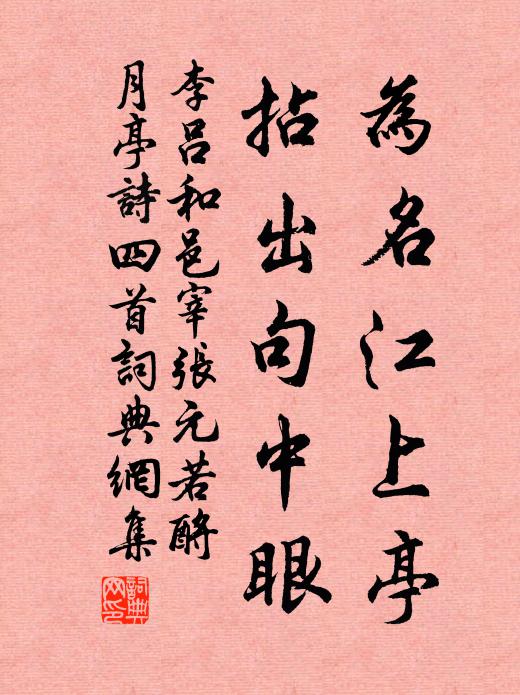 為名江上亭
拈出句中眼
李呂和邑宰張元若酹
月亭詩四首詞典網集
詞典網印